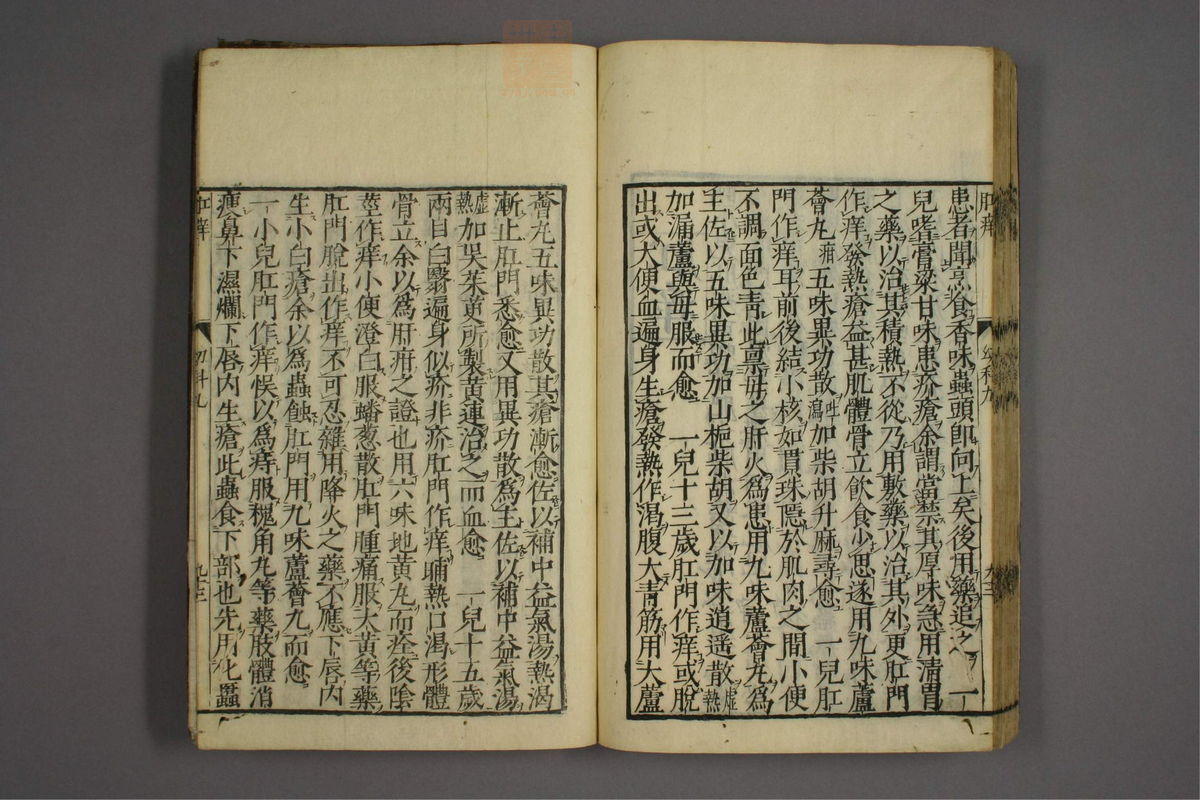 肛痒
幼科九
九十三
患者聞烹食香味蟲頭即向上矣後用藥追之 一
兒嗜膏粱甘味患疥瘡余謂當禁其厚味急用清胃
之藥以治其積熱不從乃用敷藥以治其外更肛門
作痒發熱瘡益甚肌體骨立飲食少思遂用九味蘆
薈丸疳五味異功散吐瀉加柴胡升麻尋愈 一兒肛
門作痒耳前後結小核如貫珠隱於肌肉之間小便
不調面色青此稟母之肝火為患用九味蘆薈丸為
主佐以五味異功加山梔柴胡又以加味逍遥散虛熱
加漏蘆與母服而愈 一兒十三歲肛門作痒或脫
出或大便血遍身生瘡發熱作渴腹大青筋用大蘆
薈丸五味異功散其瘡漸愈佐以補中益氣湯熱渴
漸止肛門悉愈又用異功散為主佐以補中益氣湯
虛熱加吳茱萸所製黃連治之而血愈 一兒十五歲
兩目白翳遍身似疥非疥肛門作痒晡熱口渴形體
骨立余以為肝疳之證也用六味地黃丸而痊後陰
莖作痒小便澄白服蟠葱散肛門腫痛服大黃等藥
肛門脫出作痒不可忍雜用降火之藥不應下唇内
生小白瘡余以為蟲蝕肛門用九味蘆薈丸而愈
一小兒肛門作痒悞以為痔服槐角丸等藥肢體消
瘦鼻下濕爛下唇内生瘡此蟲食下部也先用化䘌
肛痒
幼科九
九十三